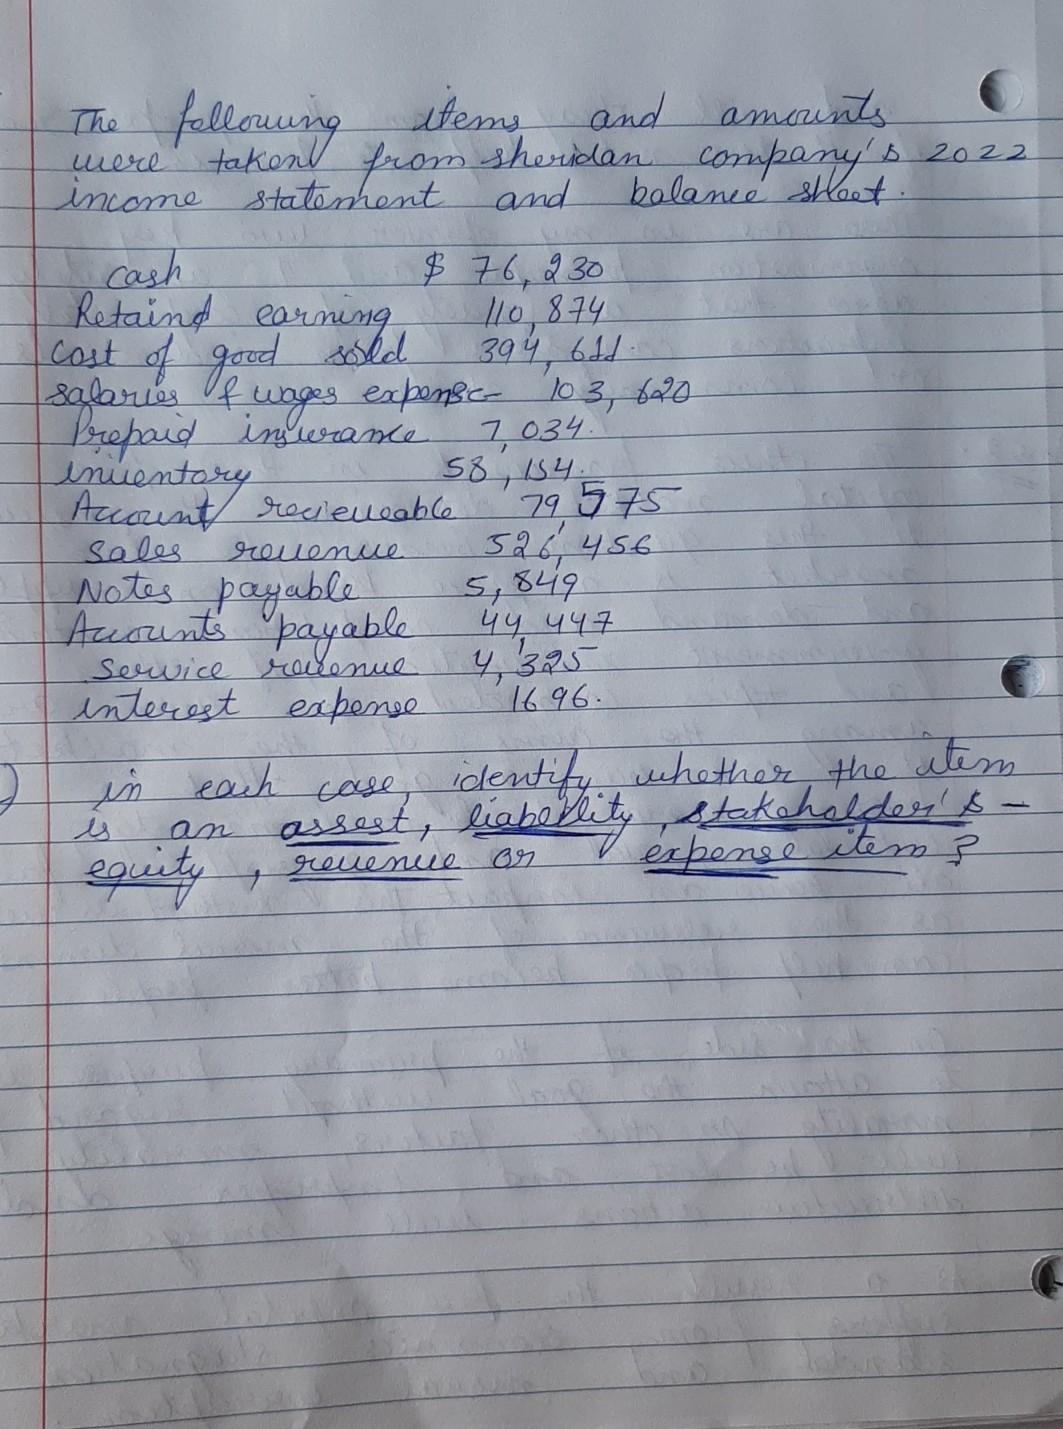 The following items and amounts
were taken from sheridan company's 2022
income statement and balance sheet.
cash $ 76,230
Retaind earning 110,874
Cost of good sold 394,611.
salaries & wages expense- 103,620
Prepaid insurance 7,034.
inventory 58,154.
Account recieveable 79,575
Sales revenue 526,456
Notes payable 5,849
Accounts payable 44,447
Service revenue 4,325
interest expense 1696.
) in each case, identify whether the item
is an assest, liability, stakeholder's -
equity, revenue or expense item?